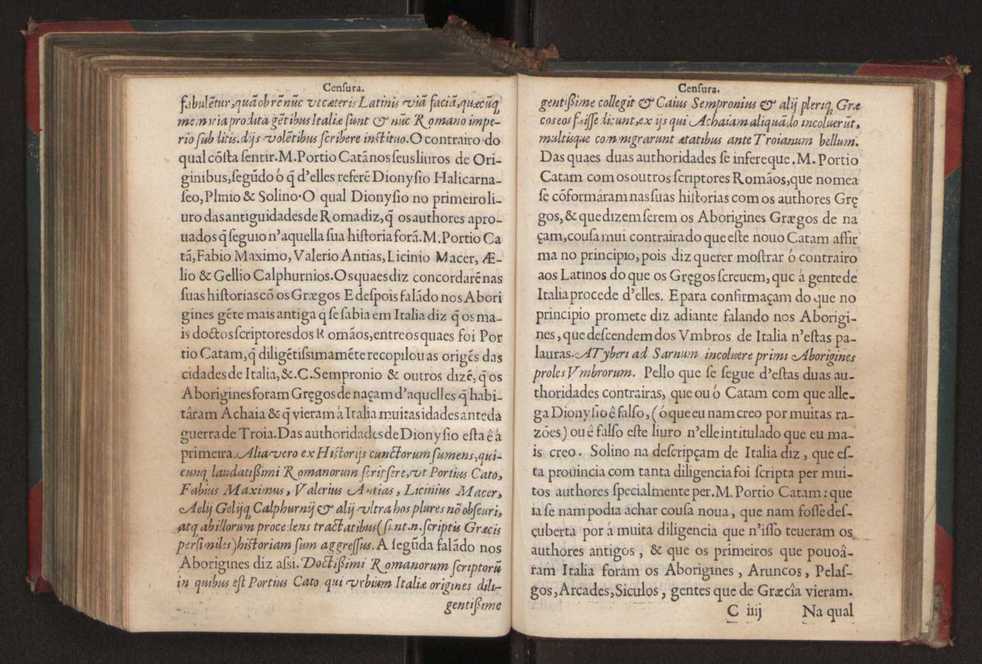 Censura.
fabulētur, quā ob rē nūc vt cæteris Latinis viā faciā, quæcūq;
me in via produta gētibus Italiæ sunt & nūc Romano impe-
rio sub litis. dijs volētibus scribere instituo. O contrairo do
qual cōsta sentir. M. Portio Catā nos seus liuros de Ori-
ginibus, segūdo ó q̃ d'elles referē Dionysio Halicarna-
seo, Plinio & Solino. O qual Dionysio no primeiro li-
uro das antiguidades de Roma diz, q̃ os authores apro-
uados q̃ seguio n'aquella sua historia forā. M. Portio Ca
tā, Fabio Maximo, Valerio Antias, Licinio Macer, Æ-
lio & Gellio Calphurnios. Os quaes diz concordarē nas
suas historias cō os Græegos E despois falādo nos Abori
gines gēte mais antiga q̃ se sabia em Italia diz q̃ os ma-
is doctos scriptores dos Romãos, entre os quaes foi Por
tio Catam, q̃ diligētissimamēte recopilou as origēs das
cidades de Italia, &. C. Sempronio & outros dizē, q̃ os
Aborigines foram Gręgos de naçam d'aquelles q̃ habi-
táram Achaia & q̃ vieram à Italia muitas idades ante da
guerra de Troia. Das authoridades de Dionysio esta ê â
primeira. Alia vero ex Historijs cunctorum sumens, qui-
cunq; laudatißimi Romanorum scripsere, vt Portius Cato,
Fabius Maximus, Valerius Antias, Licinius Macer,
Aelij Gelijq; Calphurnij & alij vltra hos plures nō obscuri,
atq; ab illorum procedens tractatibus (sūt .n. scriptis Græcis
persimiles) historiam sum aggressus. A segūda falādo nos
Aborigines diz assi. Doctißimi Romanorum scriptorū
in quibus est Portius Cato qui vrbium Italiæ origines dili-
gentißime
Censura.
gentißime collegit & Caius Sempronius & alij pleriq; Græ
cos eos fuisse dicunt, ex ijs qui Achaiam aliquādo incoluerūt,
multisque commigrarunt ætatibus ante Troianum bellum.
Das quaes duas authoridades se infere que. M. Portio
Catam com os outros scriptores Romãos, que nomea
se cōformáram nas suas historias com os authores Grę
gos, & que dizem serem os Aborigines Græegos de na
çam, cousa mui contraira do que este nouo Catam affir
ma no principio, pois diz querer mostrar ó contrairo
aos Latinos do que os Gręgos screuem, que â gente de
Italia procede d'elles. E para confirmaçam do que no
principio promete diz adiante falando nos Aborigi-
nes, que descendem dos Vmbros de Italia n'estas pa-
lauras. A Tyberi ad Sarnum incoluere primi Aborigines
proles Vmbrorum. Pello que se segue d'estas duas au-
thoridades contrairas, que ou ó Catam com que alle-
ga Dionysio ê falso, (ó que eu nam creo por muitas ra-
zões) ou ê falso este liuro n'elle intitulado que eu ma-
is creo. Solino na descripçam de Italia diz, que es-
ta prouincia com tanta diligencia foi scripta per mui-
tos authores specialmente per. M. Portio Catam: que
ia se nam podia achar cousa noua, que nam fosse des-
cuberta por á muita diligencia que n'isso teueram os
authores antigos, & que os primeiros que pouoâ-
ram Italia foram os Aborigines, Aruncos, Pelas-
gos, Arcades, Siculos, gentes que de Græcia vieram.
C iiij Na qual